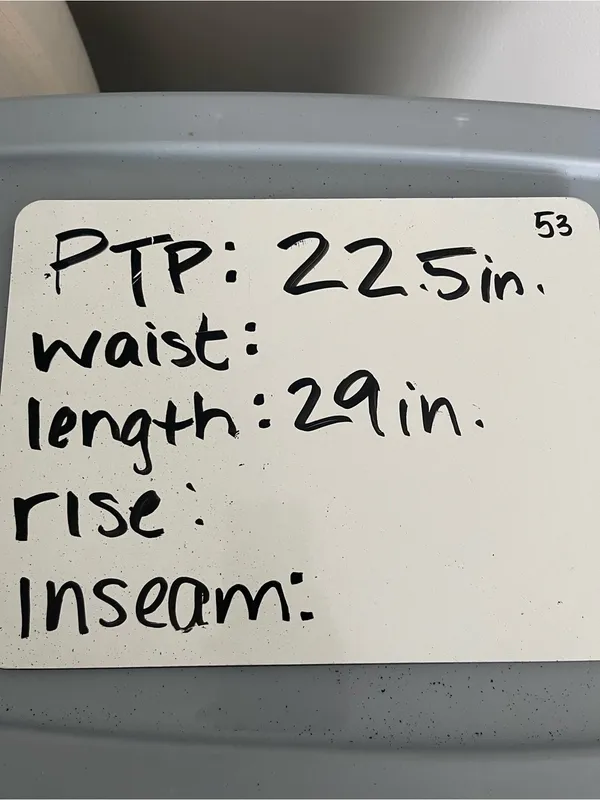 53
PTP: 22.5in.
waist:
length: 29in.
rise:
Inseam: